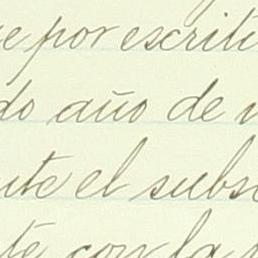 e por escrit
do año de
nte el subs
te con la